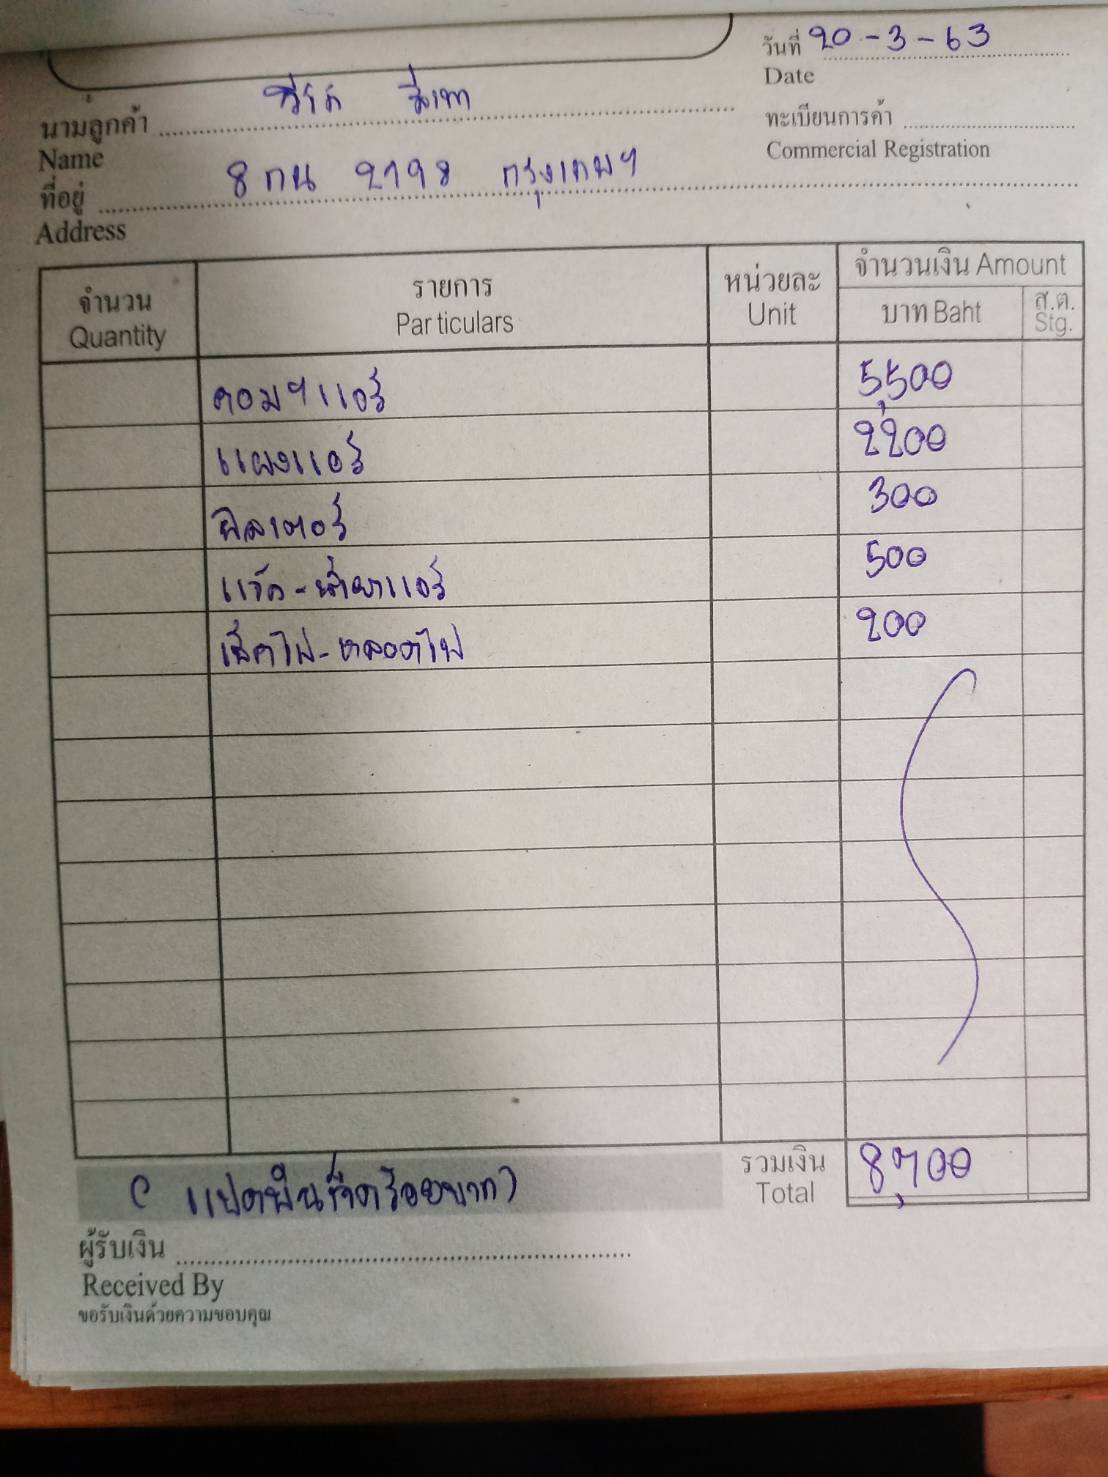 วันที่ 20-3-63
Date
นามลูกค้า
Name
ทะเบียนการค้า
Commercial Registration
ที่อยู่ 8 กน 2798 กรุงเทพฯ
Address
จำนวน รายการ หน่วยละ จำนวนเงิน Amount
Quantity Particulars Unit บาท Baht ส.ต. Stg.
คอมฯแอร์ 5,500
แผงแอร์ 2200
ฟิลเตอร์ 300
แว๊ค-น้ำยาแอร์ 500
เช็คไฟ-หลอดไฟ 200
(แปดพันเจ็ดร้อยบาท) รวมเงิน 8,700
Total
ผู้รับเงิน
Received By
ขอรับเงินด้วยความขอบคุณ